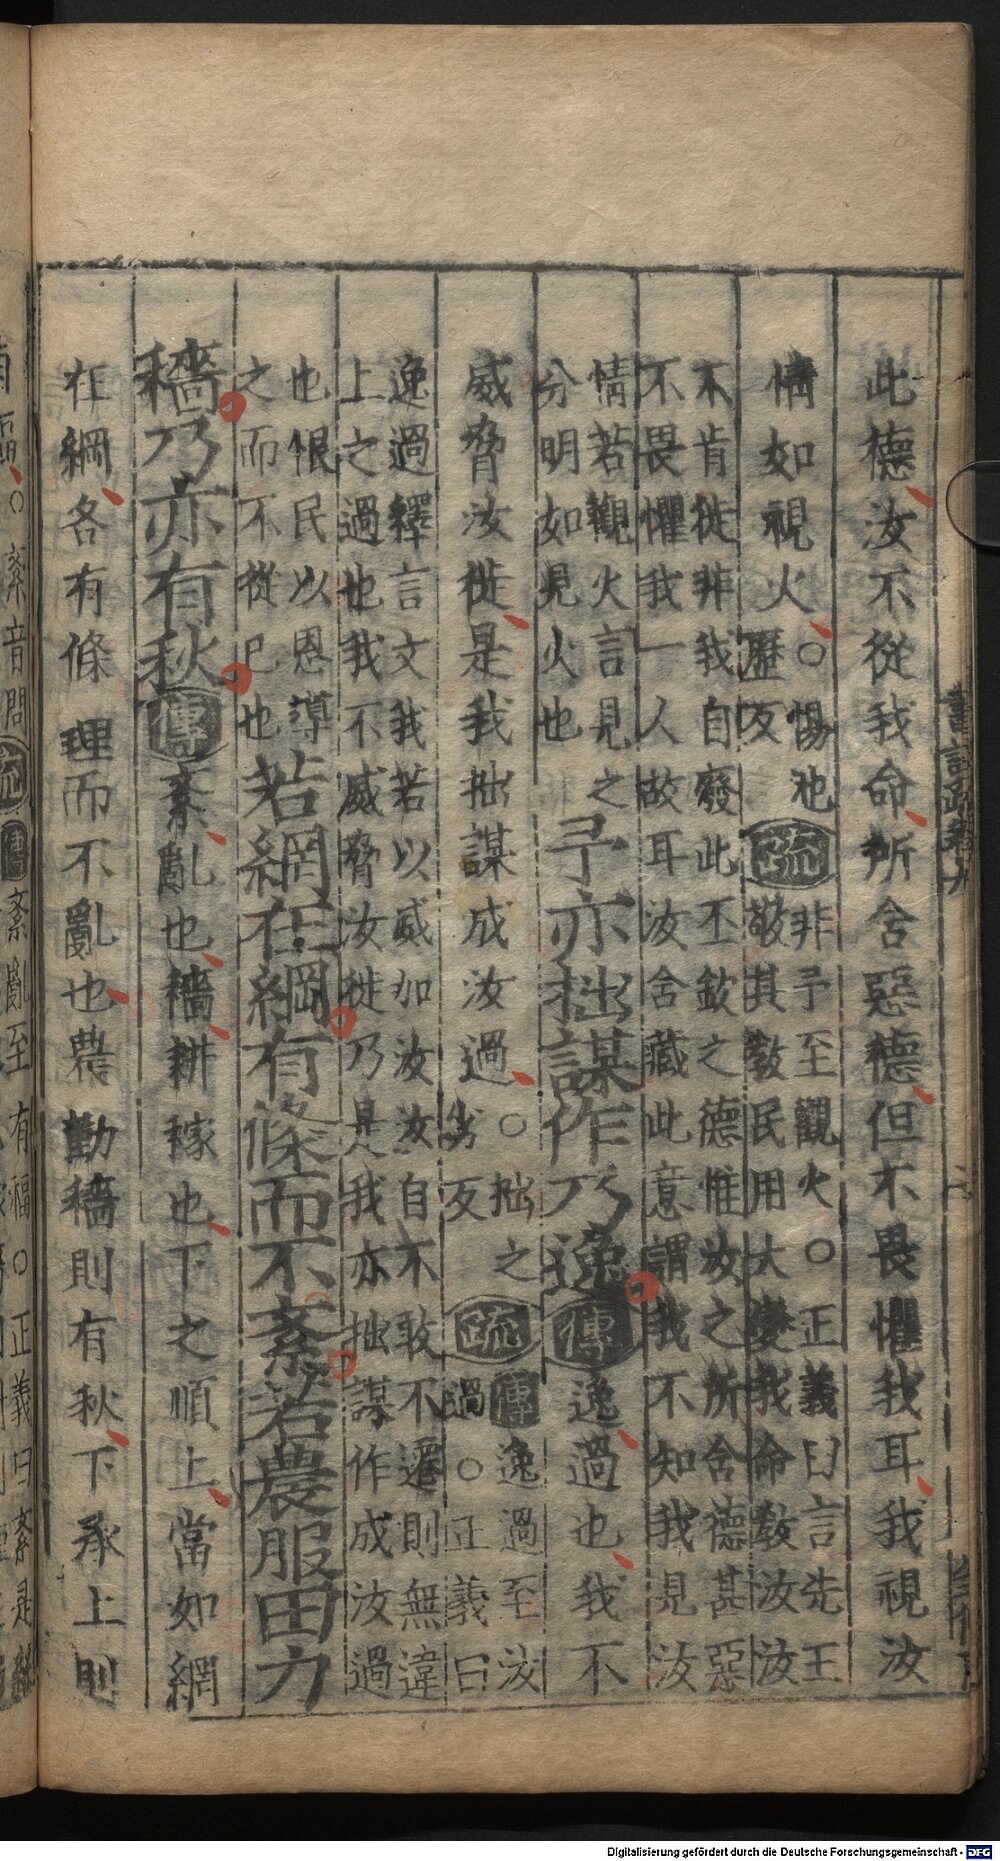 此德汝不從我命所含惡德但不畏懼我耳我視汝
情如視火○惕他
歷反
疏
非予至觀火○正義曰言先王
敬其教民用大變我命教汝汝
不肯徙非我自廢此丕欽之德惟汝之所含德甚惡
不畏懼我一人故耳汝含藏此意謂我不知我見汝
情若觀火言見之
分明如見火也
予亦拙謀作乃逸傳逸過也我不
威脅汝徙是我拙謀成汝過○拙之
劣反
疏
傳逸過至汝
過○正義曰
逸過釋言文我若以威加汝汝自不敢不遷則無違
上之過也我不威脅汝徙乃是我亦拙謀作成汝過
也恨民以恩導
之而不從己也
若網在綱有條而不紊若農服田力
穡乃亦有秋傳紊亂也穡耕稼也下之順上當如網
在綱各有條理而不亂也農勤穡則有秋下承上則
Digitalisierung gefördert durch die Deutsche Forschungsgemeinschaft - DFG